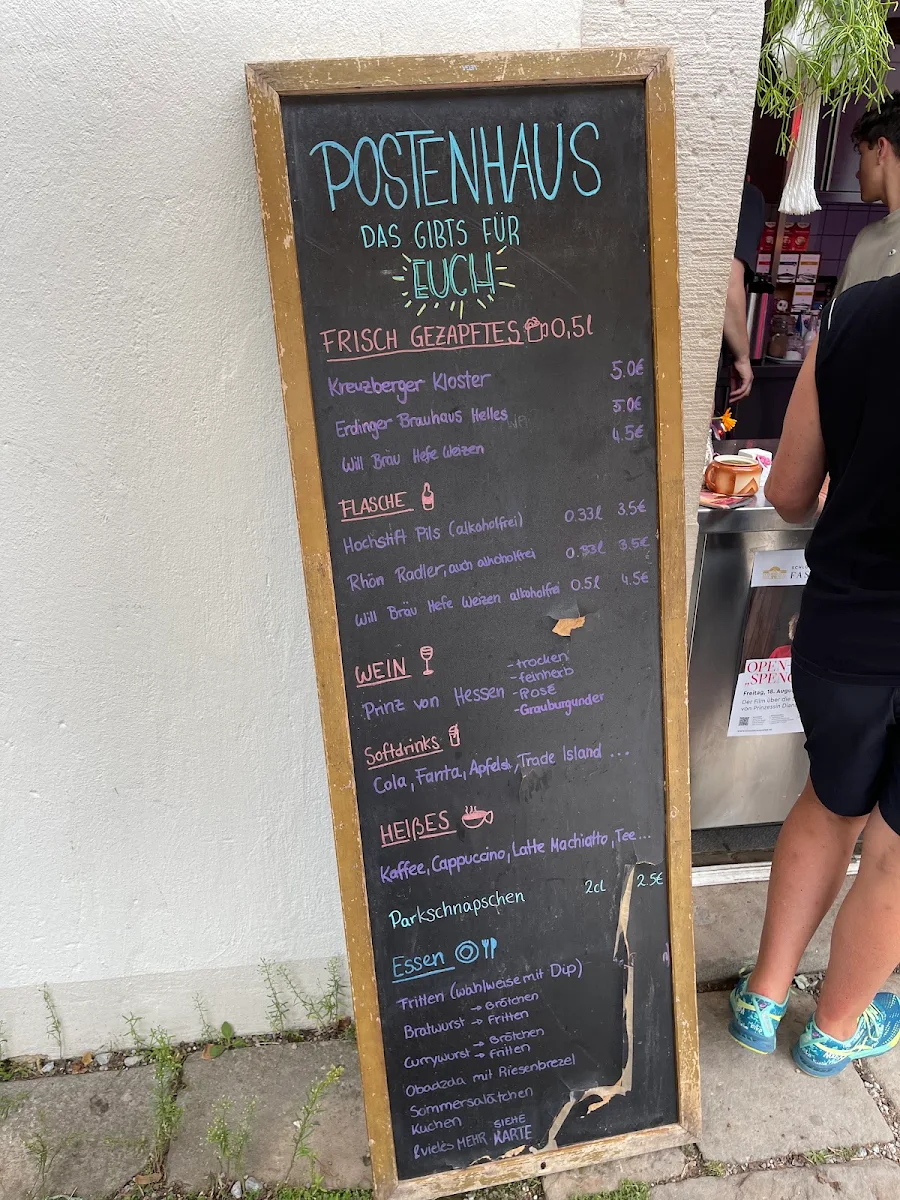 POSTENHAUS
DAS GIBTS FÜR
EUCH
FRISCH GEZAPFTES 0,5l
Kreuzberger Kloster 5.0€
Erdinger Brauhaus Helles 5.0€
Will Bräu Hefe Weizen 4.5€
FLASCHE
Hochstift Pils (alkoholfrei) 0.33l 3.5€
Rhön Radler, auch alhoholfrei 0.33l 3.5€
Will Bräu Hefe Weizen alkoholfrei 0.5l 4.5€
WEIN
Prinz von Hessen
-trocken
-feinherb
-Rosé
-Grauburgunder
Softdrinks
Cola, Fanta, Apfels, Trade Island ...
HEIßES
Kaffee, Cappuccino, Latte Machiatto, Tee...
Parkschnäpschen 2cl 2.5€
Essen
Fritten (wahlweise mit Dip)
Bratwurst → Brötchen
→ Fritten
Currywurst → Brötchen
→ Fritten
Obadzda mit Riesenbrezel
Sommersalätchen
Kuchen
& vieles MEHR SIEHE
KARTE
OPEN-
Freitag, 16. Augu
Der Film über die
von Prinzessin Dian